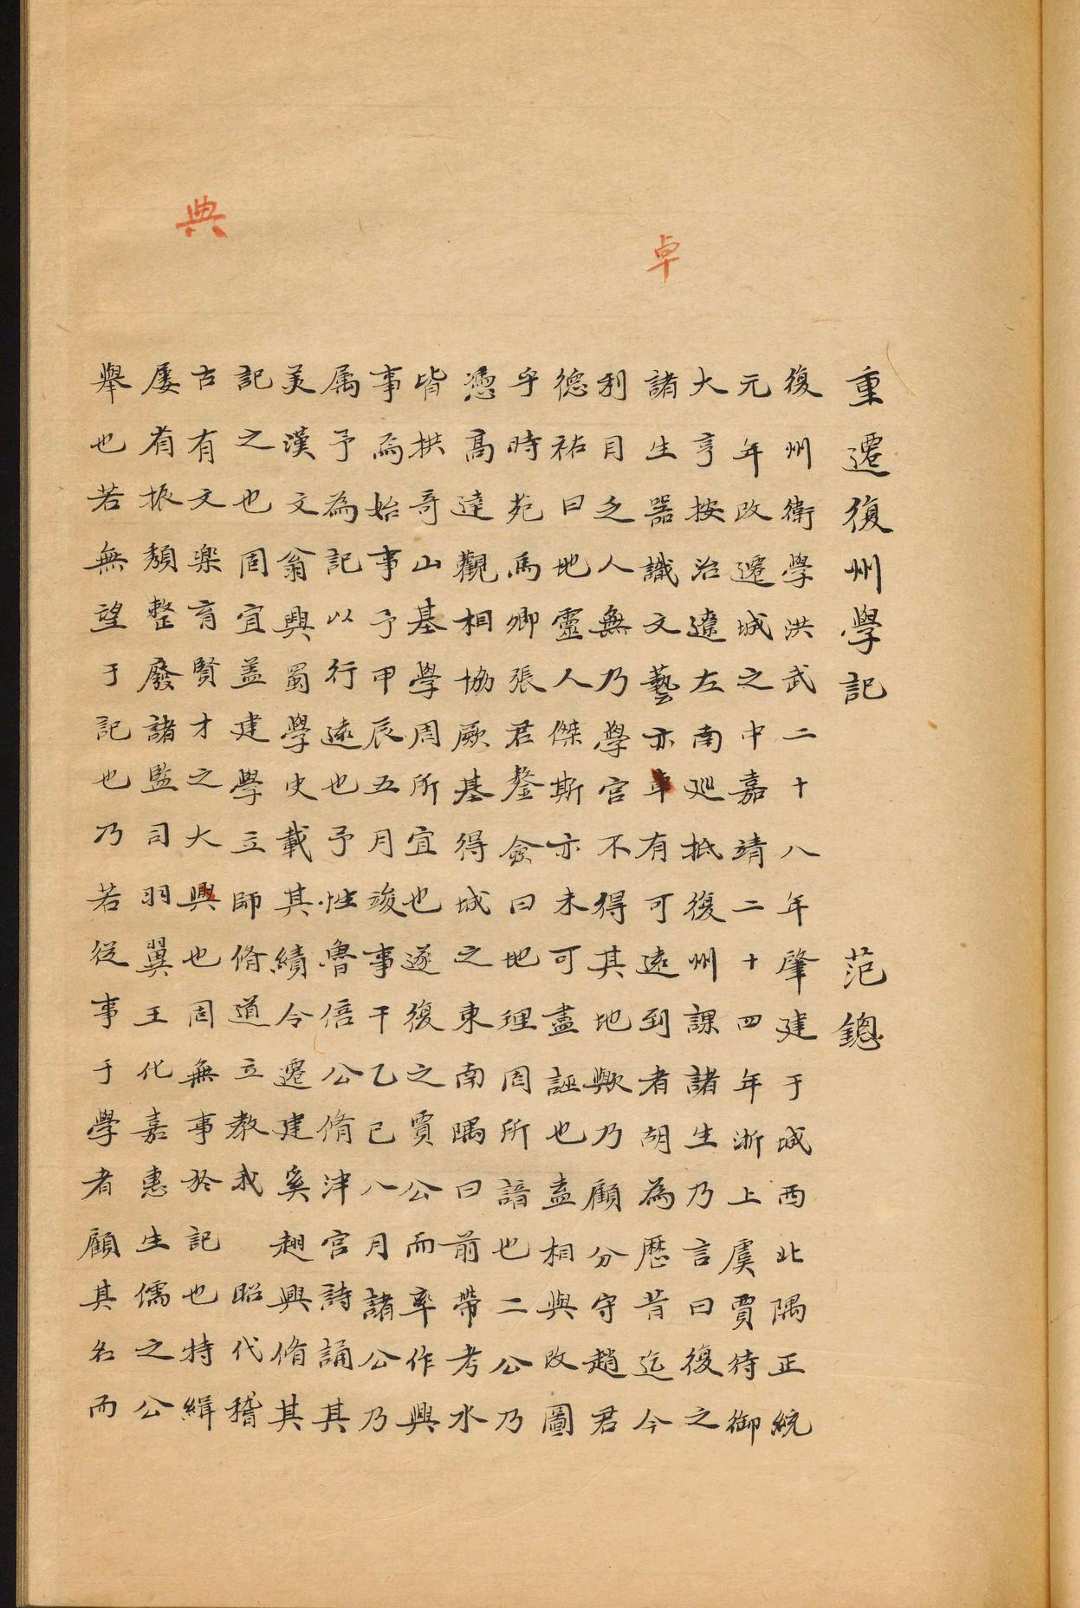 卓
典
重遷復州學記 范鏓
復州衛學洪武二十八年肇建于城西北隅正統
元年改遷城之中嘉靖二十四年浙上虞賈待御
大亨按治遼左南廵抵復州課諸生乃言曰復之
諸生器識文藝亦車有可遠到者胡為歷昔迄今
利目之人無乃學宮不得其地歟乃顧分守趙君
德祐曰地靈人傑斯亦未可盡誣也盍相與改圖
乎時苑馬卿張君鏊僉曰地理固所諳也二公乃
憑高達觀相協厥基得城之東南隅曰前帶考水
皆拱哥山基學周所宜也遂復之賈公而率作興
事焉始事予甲辰五月竣事于乙巳八月諸公乃
属予為記以行遠也予性魯僖公脩泮宮詩誦其
美漢文翁興蜀學史載其績今遷建奚翅興脩其
記之也固宜蓋建學立師脩道立教我 昭代稽
古有文樂育賢才之大興也固無事於記也持緝
屡有振頽整廢諸監司羽翼王化嘉惠生儒之公
舉也若無望于記也乃若從事于學者顧其名而